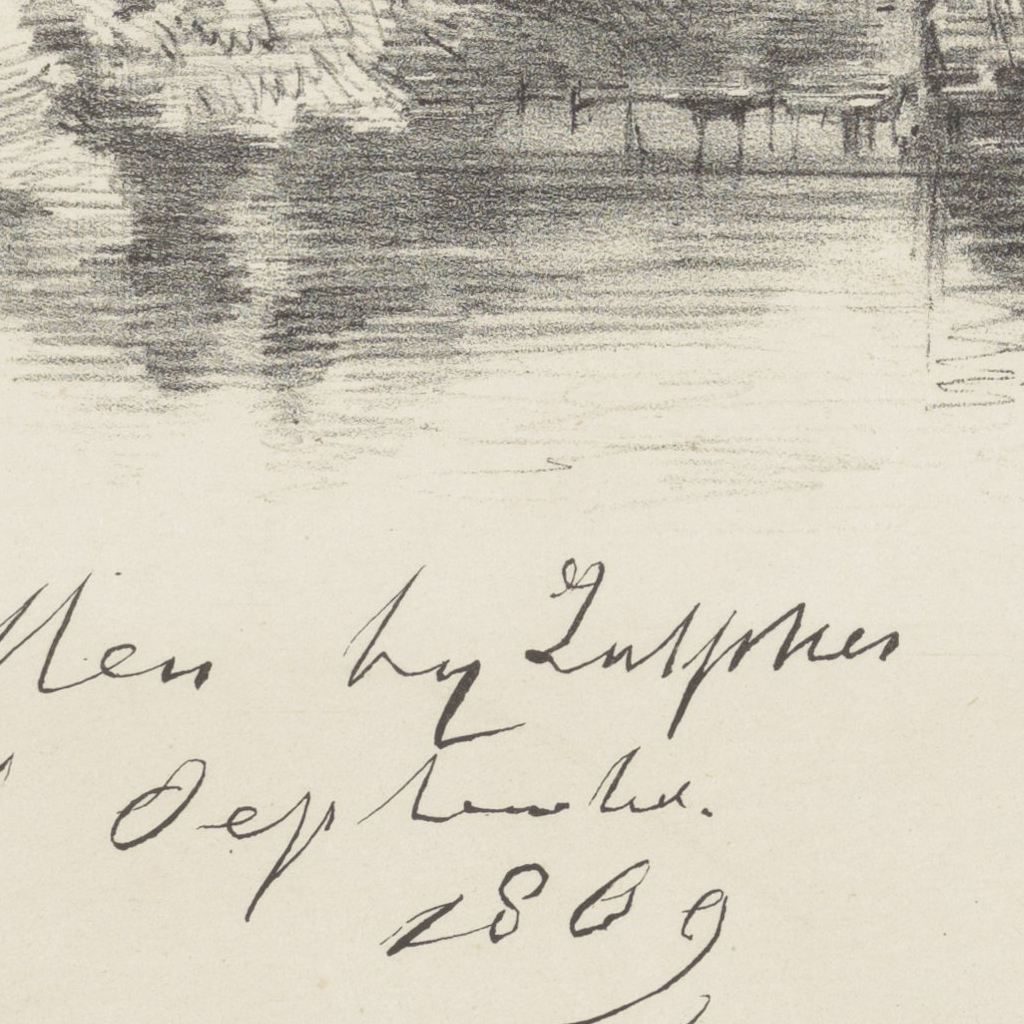 by Zutphen
September.
1869